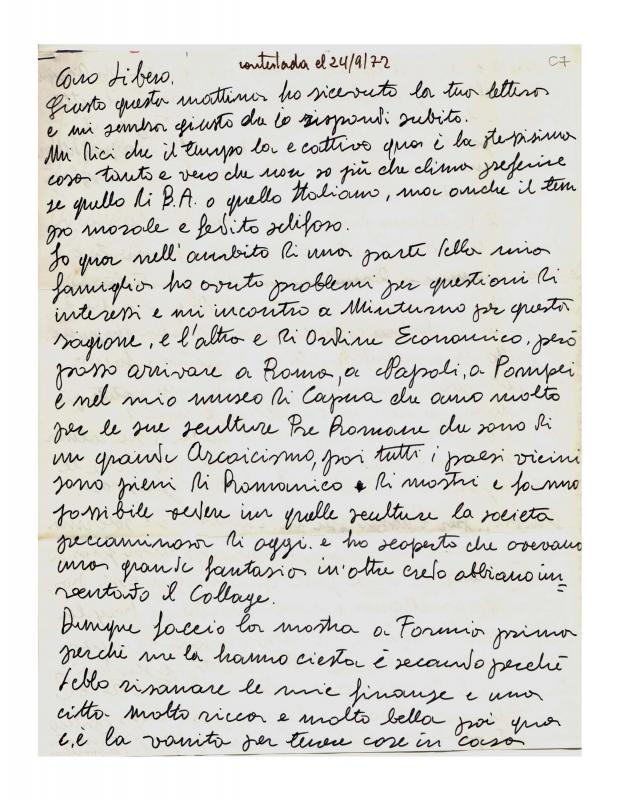 contestada el 24/9/72
C7
Caro Libero,
Giusto questa mattina ho ricevuto la tua lettera
e mi sembra giusto che te rispondi subito.
Mi dici che il tempo la e cattivo qua è la stessisima
cosa tanto e vero che non so più che clima preferire
se quello di B.A. o quello Italiano, ma anche il tem
po morale e fetido schifoso.
Io qua nell'ambito di una parte della mia
famiglia ho avuto problemi per questioni di
interessi e mi incontro a Minturno per questa
ragione, e l'altra e di Ordine Economico, però
posso arrivare a Roma, a Napoli, a Pompei
e nel mio museo di Capua che amo molto
per le sue sculture Pre Romane che sono di
un grande Arcaicismo, poi tutti i paesi vicini
sono pieni di Romanico di mostri e fanno
possibile vedere in quelle sculture la società
peccaminosa di oggi. e ho scoperto che avevano
una grande fantasia in'oltre credo abbiano in=
ventato il Collage.
Dunque faccio la mostra a Formia prima
perchè me la hanno ciesta è secondo perchè
debbo risanare le mie finanse e una
citta molto ricca e molto bella poi qua
c,è la vanita per tenere cose in casa